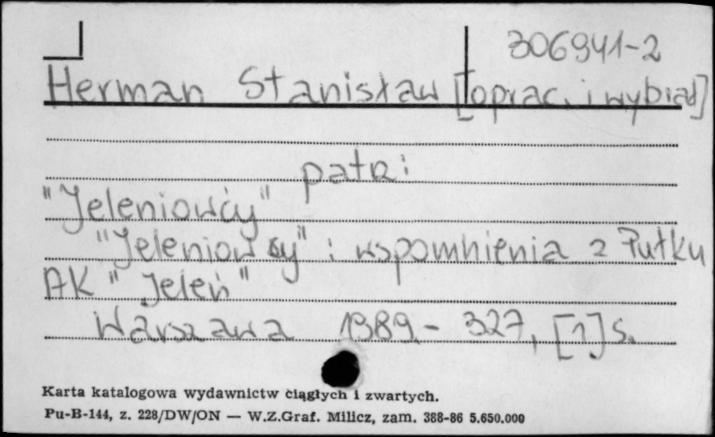 306941-2
Herman Stanisław [oprac. i wybrał]
patrz:
"Jeleniowcy"
"Jeleniowcy" : wspomnienia z Pułku
AK "Jeleń"
Warszawa 1989.- 327, [1] s.
Karta katalogowa wydawnictw ciągłych i zwartych.
Pu-B-144, z. 228/DW/ON — W.Z.Graf. Milicz, zam. 388-86 5.650.000